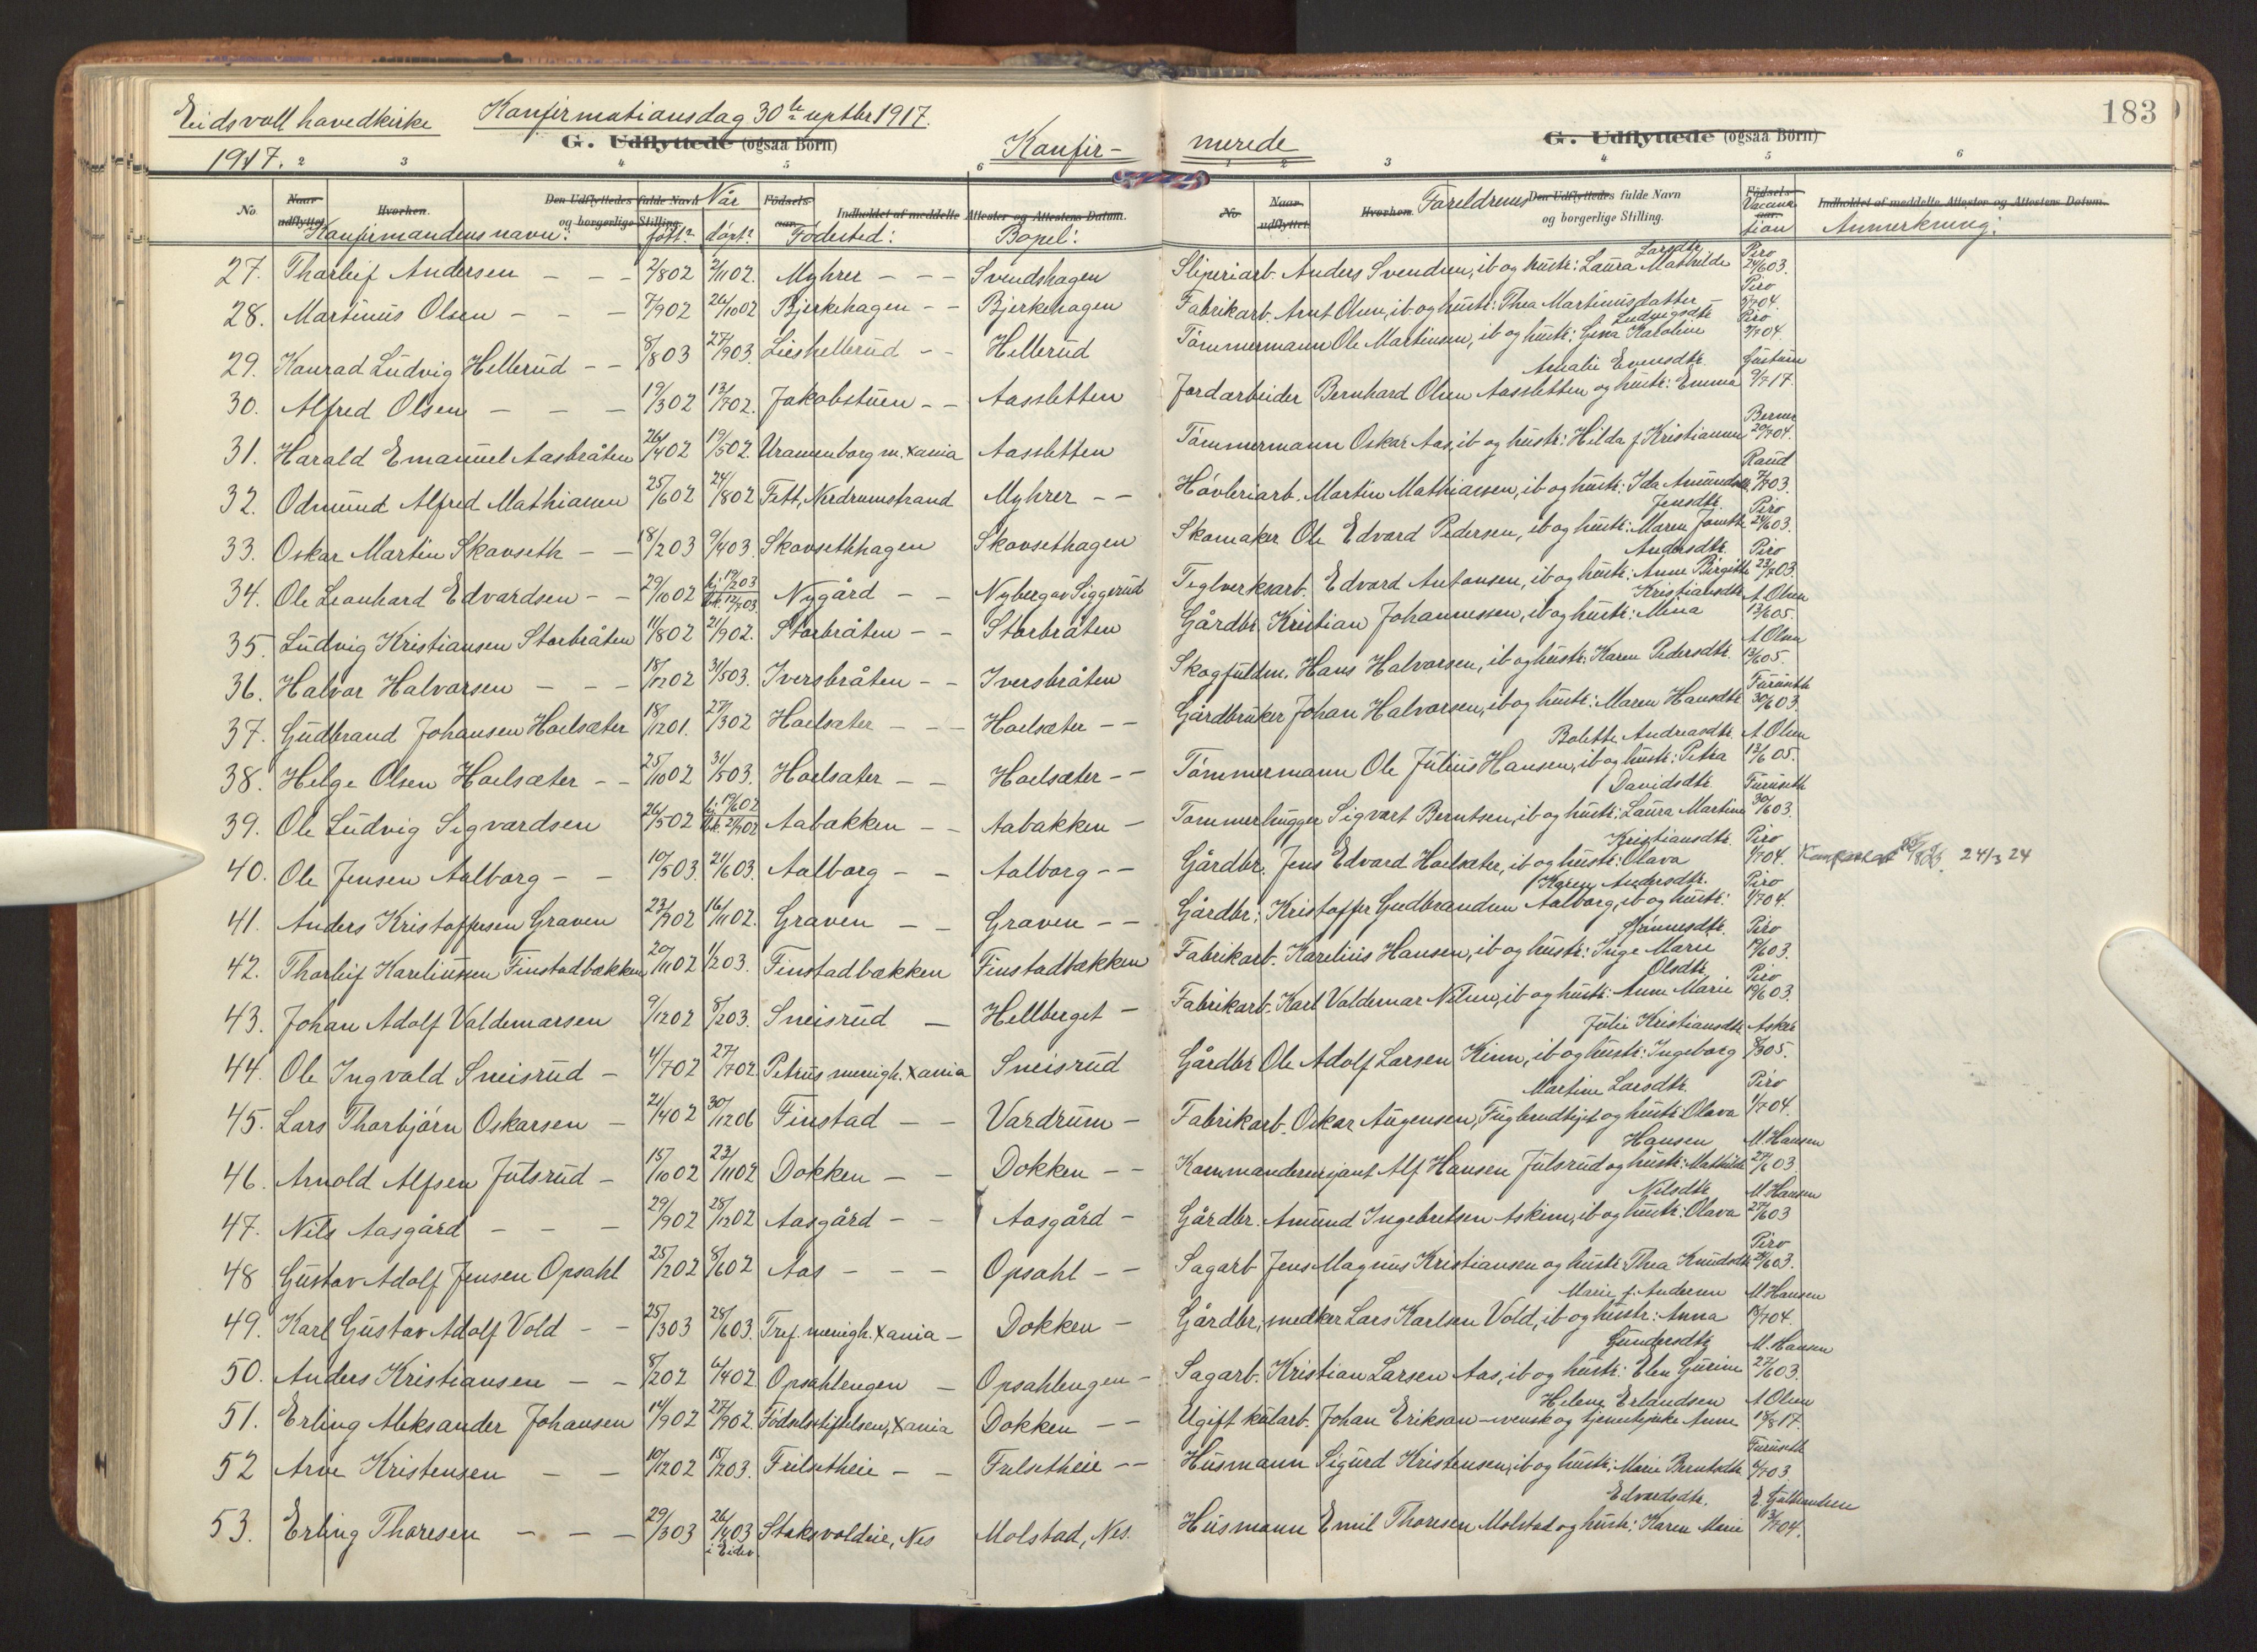 Eidsvoll hovedkirke Konfirmationsdag 30te septbr 1917.
183
G. Udflyttede (ogsaa Börn)
Konfir- merede
G. Udflyttede (ogsaa Börn)
1917. 2 3 4 5 6 1 2 3 4 5 6
No. Naar udflyttet. Hvorhen. Den Udflyttedes fulde Navn og borgerlige Stilling. Når Födsels-aar. Indholdet af meddelte Attester og Attestens Datum.
No Naar udflyttet. Hvorhen. Foreldrenes Den Udflyttedes fulde Navn og borgerlige Stilling. Födsels-aar. Vacunation Indholdet af meddelte Attester og Attestens Datum.
Konfirmandens navn: født? døpt? Fødested: Bopel: Anmerkning:
27. Thorleif Andersen - - - 2/802 2/1102. Myhrer - - - Svendshagen Sliperiarb. Anders Svendsen, ib og hustr: Laura Mathilde Larsdtr. Piro 24/603.
28. Martinus Olsen - - - 7/902 26/1002 Bjerkehagen - - Bjerkehagen Fabrikarb. Arnt Olsen, ib og hustr: Thea Martinusdatter - Piro 5/704.
29. Konrad Ludvig Hellerud - - 8/803 27/903. Lieshellerud - - Hellerud Tømmermann Ole Martinsen, ib og hustr: Gina Karoline Ludvigsdtr. Piro 2/704.
30. Alfred Olsen - - - 19/302 13/702. Jakobstuen - - Aassletten Jordarbeider Bernhard Olsen Aassletten og hustr: Emma Amalie Evensdtr. 9/717.
31. Harald Emanuel Aasbråten 26/402 19/502. Uranienborg m. Xania Aassletten Tømmermann Oskar Aas, ib og hustr: Hilda f. Kristiansen Berner 20/704.
32. Odmund Alfred Mathiassen 25/602 24/802 Fett, Nerdrumstrand Myhrer - - Høvleriarb. Martin Mathiassen, ib og hustr: Ida Amundsdtr. Raud 7/703.
33. Oskar Martin Skovseth - - 18/203 9/403. Skovsethhagen Skovsethagen Skomaker Ole Edvard Pedersen, ib og hustr: Maren Jensdtr. Piro 24/603.
34. Ole Leonhard Edvardsen - - 29/1002 hj. 19/203 Nygård - - Nyberg av Siggerud Teglverksarb. Edvard Antonsen, ib og hustr: Anne Birgitte Andersdtr. Piro 23/703.
35. Ludvig Kristiansen Storbråten 11/802 21/902. Storbråten - - Storbråten Gårdbr. Kristian Johannessen, ib og hustr: Mina Kristiansdtr. A. Olsen 13/605.
36. Halvor Halvorsen - - - 18/1202 31/503. Iversbråten - - Iversbråten Skogfuldm. Hans Halvorsen, ib og hustr: Karen Pedersdtr. A. Olsen 13/605.
37. Gudbrand Johansen Hoelsæter 18/1201. 27/302 Hoelsæter - - - Hoelsæter - - Gårdbruker Johan Halvorsen, ib og hustr: Maren Hansdtr. Furuseth 30/603.
38. Helge Olsen Hoelsæter - - 25/1002 31/503. Hoelsæter - - Hoelsæter - - Tømmermann Ole Julius Hansen, ib og hustr: Petra Bolette Andreasdtr. A. Olsen 13/605.
39. Ole Ludvig Sigvardsen 26/502 hj. 19/602 Aabakken - - Aabakken - Tømmerhugger Sigvart Berntsen, ib og hustr: Laura Martine Davidsdtr. Furuseth 30/603.
40. Ole Jensen Aalborg - - 10/503. 21/603. Aalborg - - Aalborg - - Gårdbr. Jens Edvard Hoelsæter, ib og hustr: Olava Kristiansdtr. Piro 1/704. 24/3 24
41. Anders Kristoffersen Graven 23/902 16/1102. Graven - - Graven - - Gårdbr. Kristoffer Gudbrandsen Aalborg, ib og hustr: Karen Andersdtr. Piro 1/704.
42. Thorleif Kareliussen Finstadbækken 20/1102 1/203. Finstadbækken Finstadbækken Fabrikarb. Karelius Hansen, ib og hustr: Inge Marie Piro 19/603.
43. Johan Adolf Valdemarsen 9/1202 8/203. Sneisrud - Hellberget - Fabrikarb. Karl Valdemar Nilsen, ib og hustr: Anne Marie Olsdtr. Piro 19/603.
44. Ole Ingvald Sneisrud - 4/702 27/702 Petrus menigh. Xania Sneisrud Gårdbr. Ole Adolf Larsen Kinn, ib og hustr: Ingeborg Julie Kristiansdtr. Asker 8/305.
45. Lars Thorbjørn Oskarsen - 21/402 30/1206 Finstad - - Vardrum - Fabrikarb. Oskar Augensen, og hustr: Olava Martine Larsdtr. Piro 1/704.
46. Arnold Alfsen Julsrud - 15/1002 23/1102 Dokken - - Dokken - - Kommandersersjant Alf Hansen Julsrud og hustr: Mathilde Hansen M. Hansen 27/603.
47. Nils Aasgård - - - 29/902 28/1202 Aasgård - - Aasgård - Gårdbr. Amund Ingebretsen Askim, ib og hustr: Olava Nilsdtr. M. Hansen 27/603
48 Gustav Adolf Jensen Opsahl 25/202 8/602 Aas - - - Opsahl - - Sagarb. Jens Magnus Kristiansen og hustr: Thea Knudsdtr. Piro 24/603.
49. Karl Gustav Adolf Vold - - 25/303 28/603. Tref. menigh. Xania - Dokken - Gårdbr., snedker Lars Karlsen Vold, ib og hustr: Anna Marie f. Andersen M. Hansen 19/704.
50. Anders Kristiansen - - 8/202 6/402 Opsahlengen - Opsahlengen - Sagarb. Kristian Larsen Aas, ib og hustr: Elen Gurine Gundersdtr. M. Hansen 27/603.
51. Erling Aleksander Johansen 14/902 27/902. Fødselsstiftelsen, Xania Dokken - - Ugift kularb. Johan Erikson - svensk og tjenestepike Anne Helene Erlandsen A. Olsen 18/817.
52 Arve Kristensen - - 10/1202 15/203. Frilsetheie - - Frilsetheie - - Husmann Sigurd Kristensen, ib og hustr: Marie Berntsdtr. Furuseth 4/703.
53. Erling Thoresen - - - 29/303 26/403 i Eidsv. Stoksvoldeie, Nes Molstad, Nes. Husmann Emil Thoresen Molstad og hustr: Karen Marie Edvardsdtr. E. Gulbrandsen 13/704.